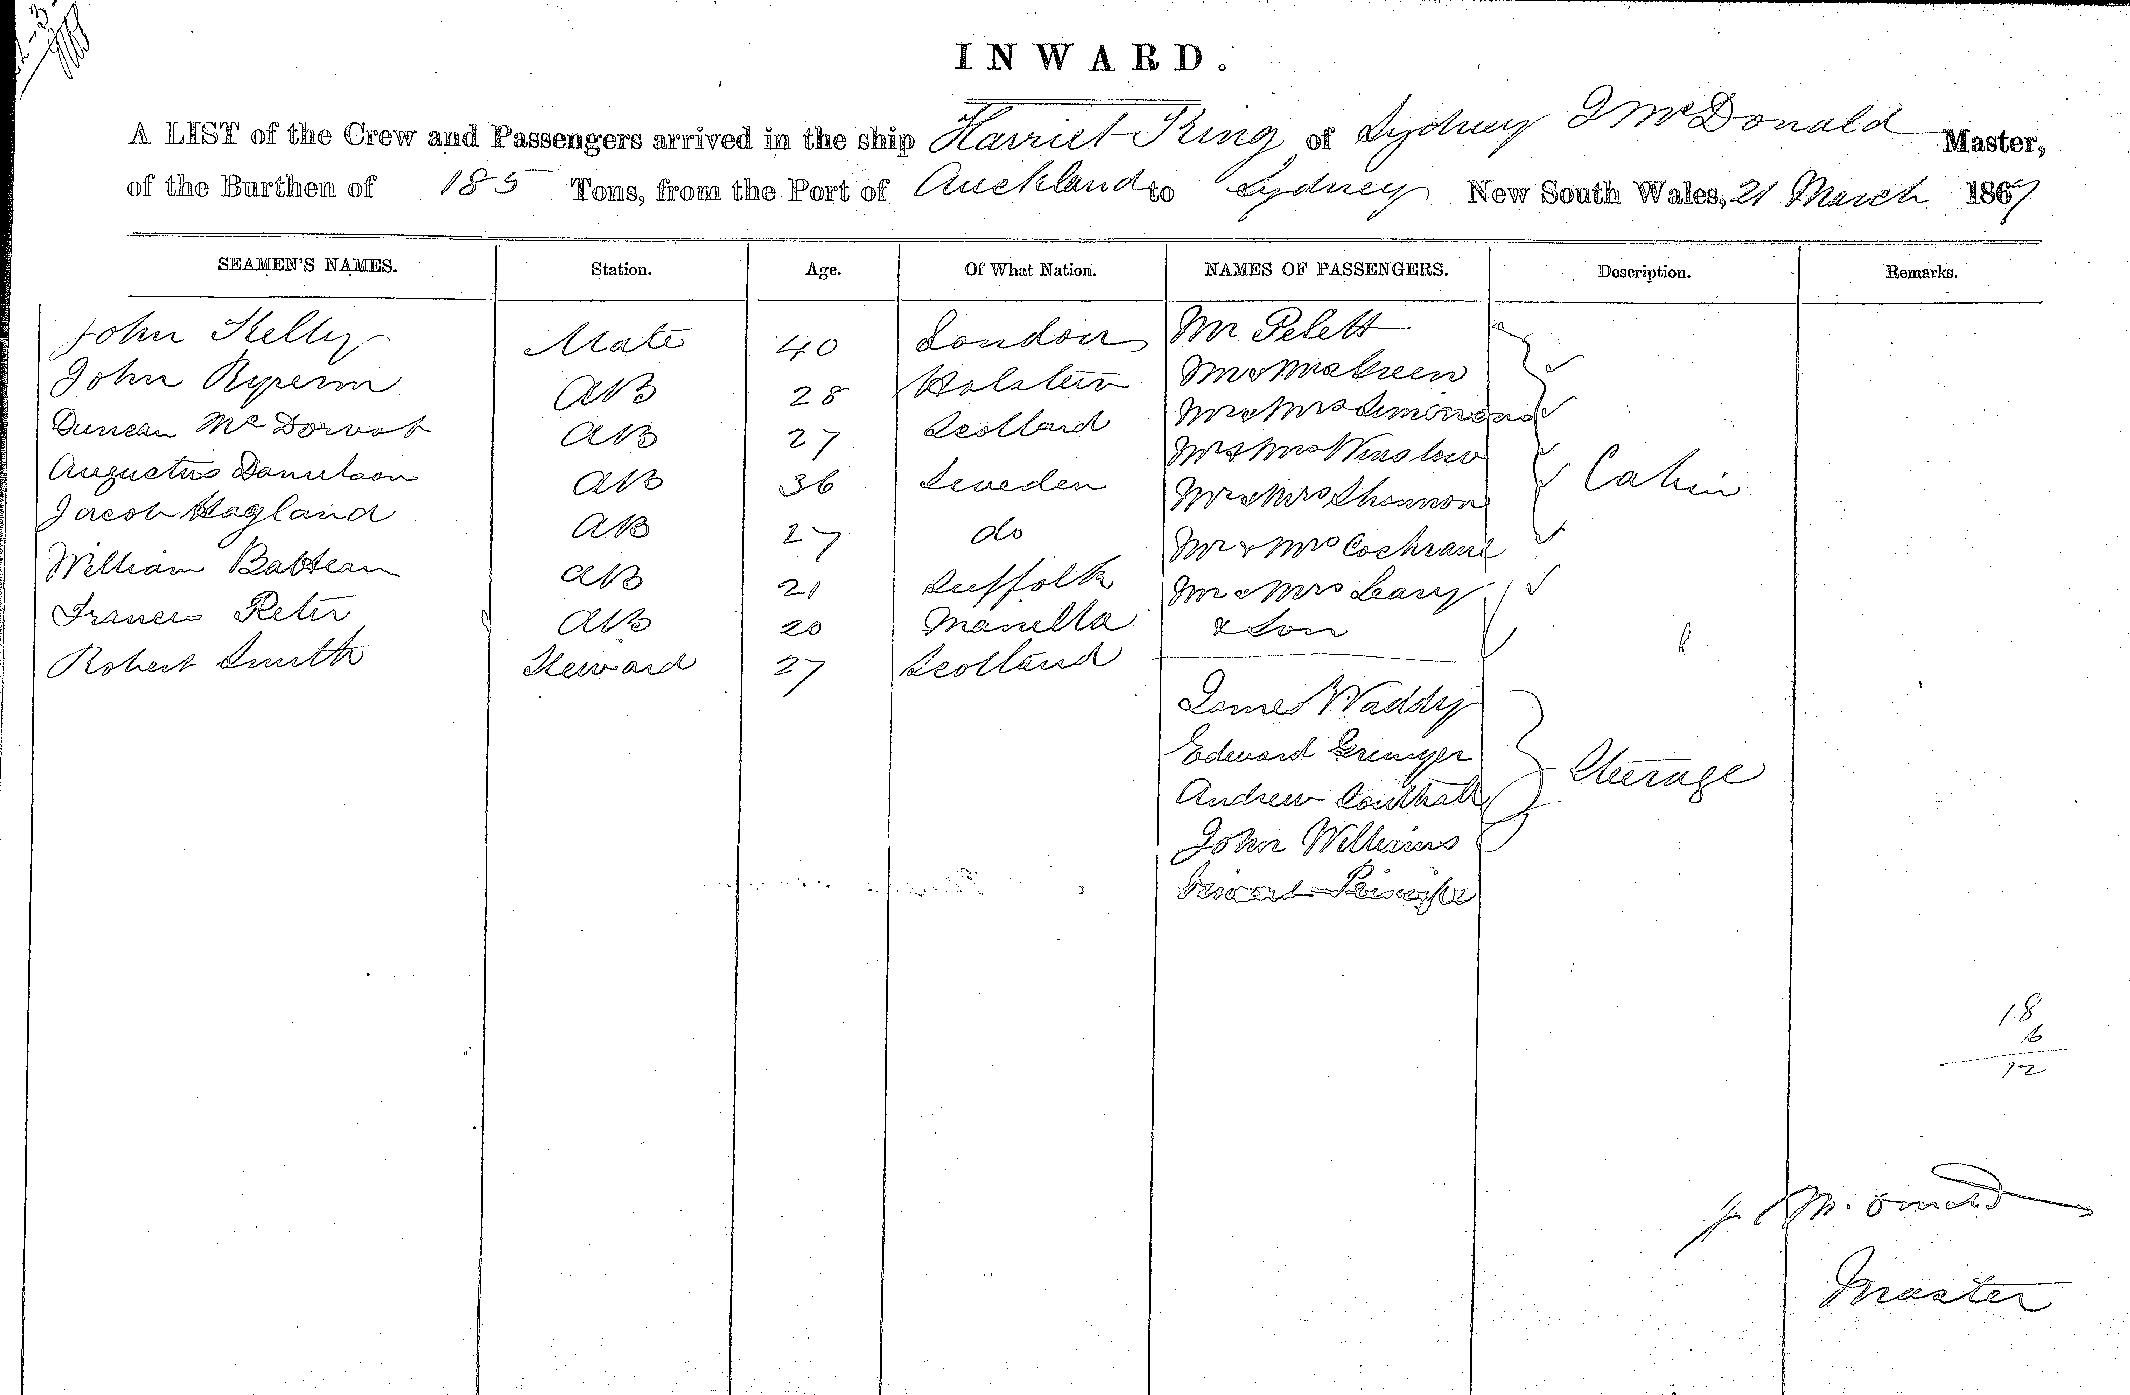 INWARD.
A LIST of the Crew and Passengers arrived in the ship Harriet King of Sydney J McDonald Master,
of the Burthen of 185 Tons, from the Port of Auckland to Sydney New South Wales, 21 March 1867
SEAMEN'S NAMES. Station. Age. Of What Nation. NAMES OF PASSENGERS. Description. Remarks.
John Kelly Mate 40 London Mr Pelett
John AB 28 Holstein Mr & Mrs Green
Duncan Mc AB 27 Scotland Mr & Mrs Simmonds
Augustus Danielson AB 36 Sweden Mr & Mrs Winslow Cabin
Jacob Hagland AB 27 do Mr & Mrs Shannon
William AB 21 Suffolk Mr & Mrs Cochrane
Frances Peter AB 20 Manilla Mr & Mrs
& Son
Robert Smith Steward 27 Scotland
James Waddy
Edward
Steerage
Andrew
John Williams
18
6
12
Master